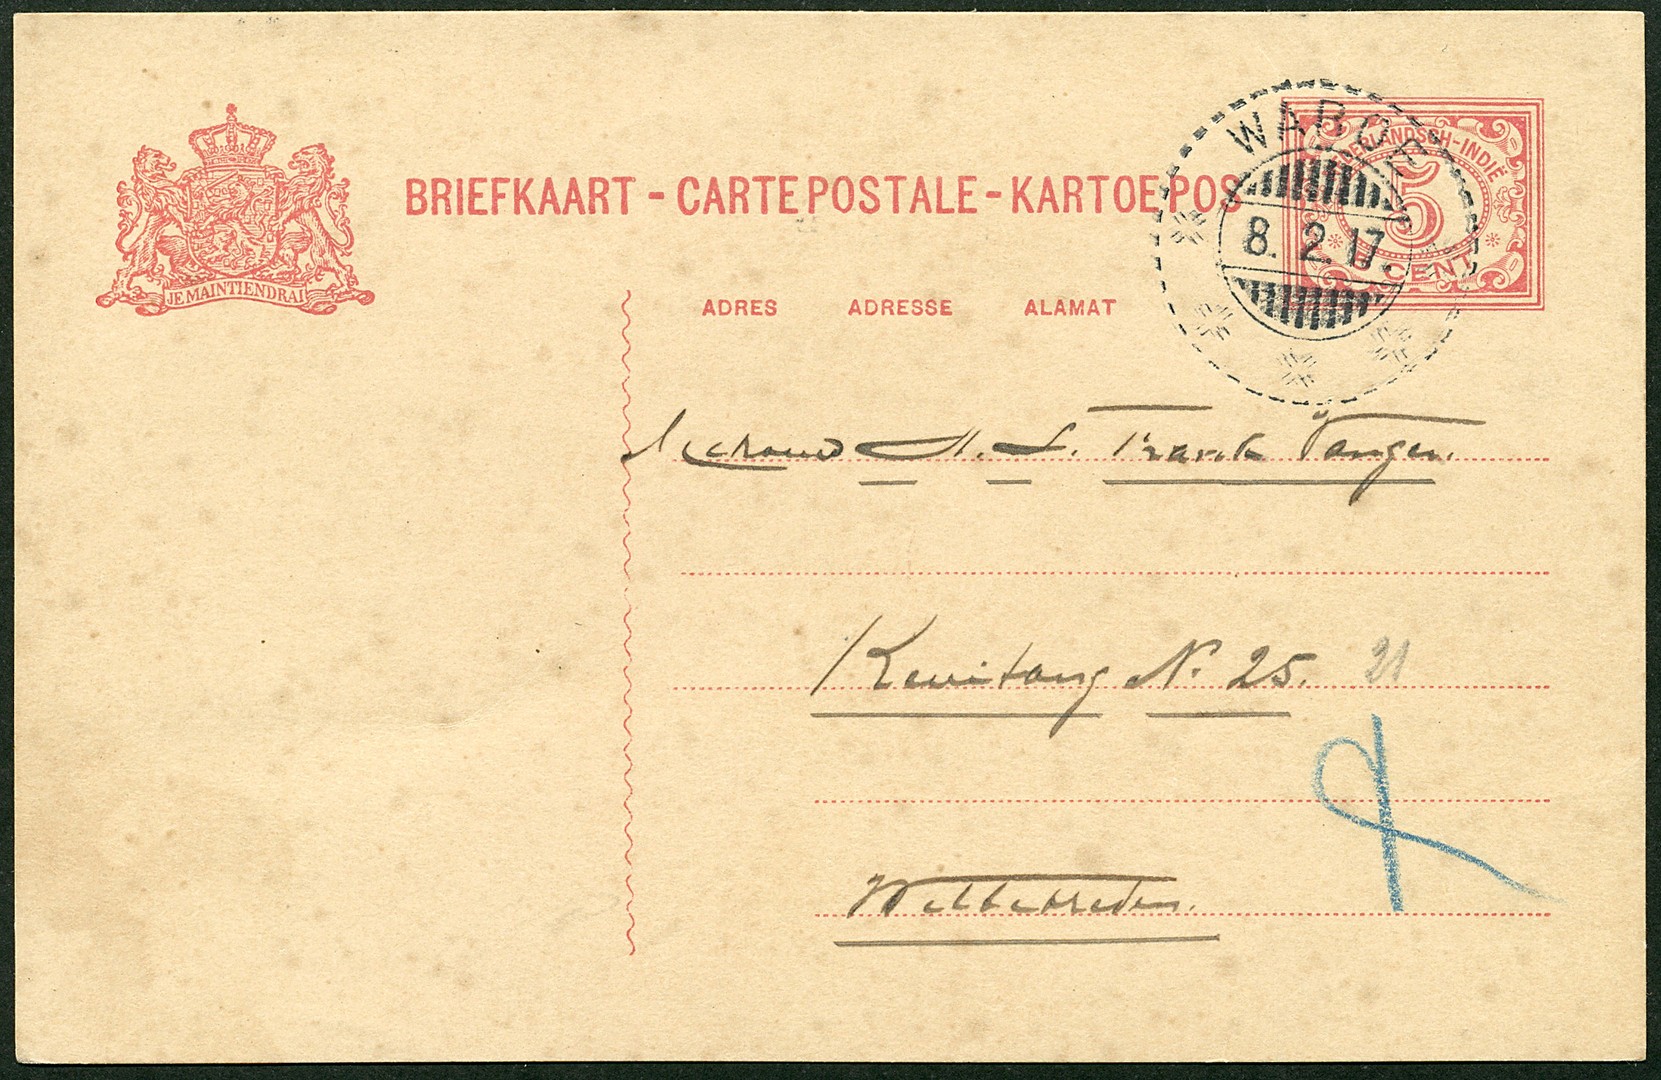 BRIEFKAART - CARTE POSTALE - KARTOE POS
WABOE
8. 2. 17.
NEDERLANDSCH-INDIË
5
CENT
JE MAINTIENDRAI
ADRES ADRESSE ALAMAT
Mevrouw M. L. Frank Tangen.
Kwitang N. 25. 21
Weltevreden.